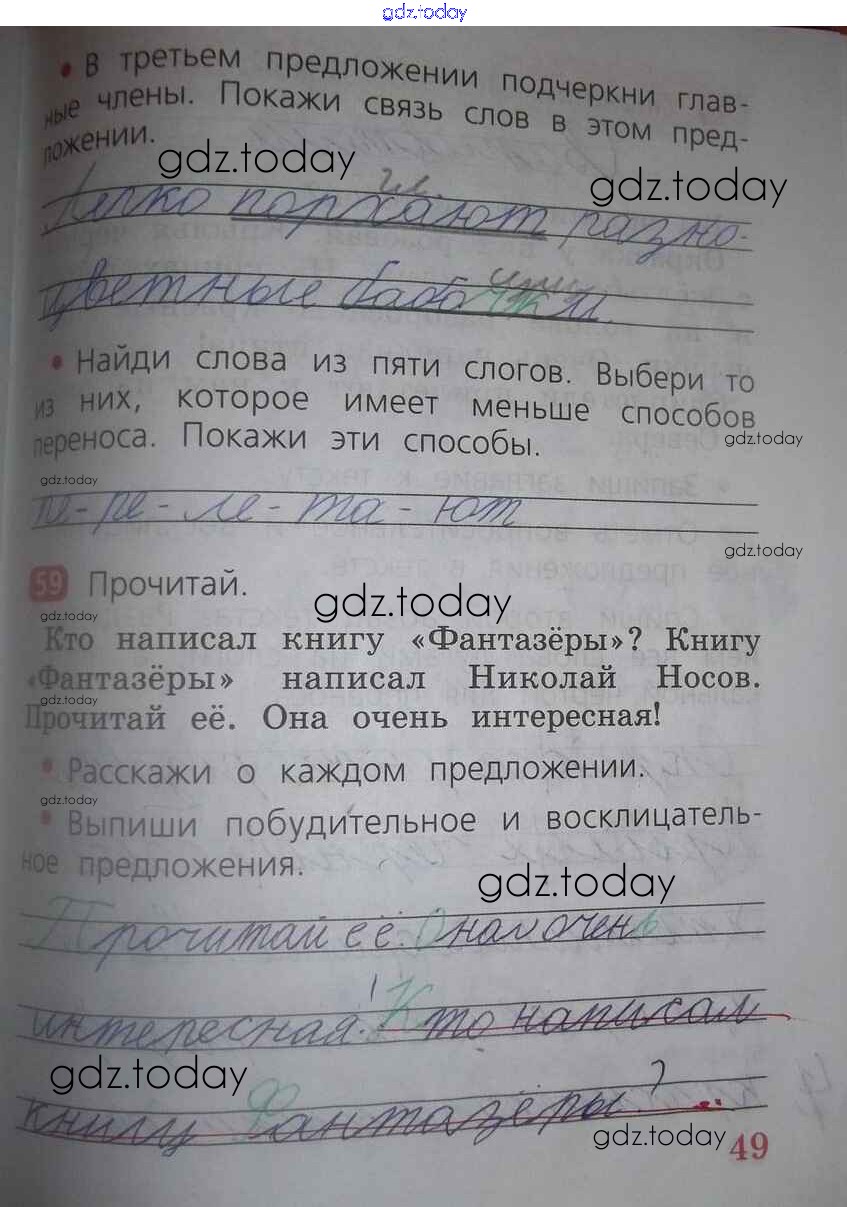 gdz.today
• В третьем предложении подчеркни глав-
ные члены. Покажи связь слов в этом пред-
ложении.
gdz.today
gdz.today
гл.
Легко порхают разно-
сущ.
цветные бабочки.
• Найди слова из пяти слогов. Выбери то
из них, которое имеет меньше способов
переноса. Покажи эти способы.
gdz.today
gdz.today
пе-ре-ле-та-ют
gdz.today
59 Прочитай.
gdz.today
Кто написал книгу «Фантазёры»? Книгу
«Фантазёры» написал Николай Носов.
gdz.today
Прочитай её. Она очень интересная!
• Расскажи о каждом предложении.
gdz.today
• Выпиши побудительное и восклицатель-
ное предложения.
gdz.today
Прочитай её. Она очень
интересная! Кто написал
gdz.today
книгу Фантазёры?
gdz.today
49